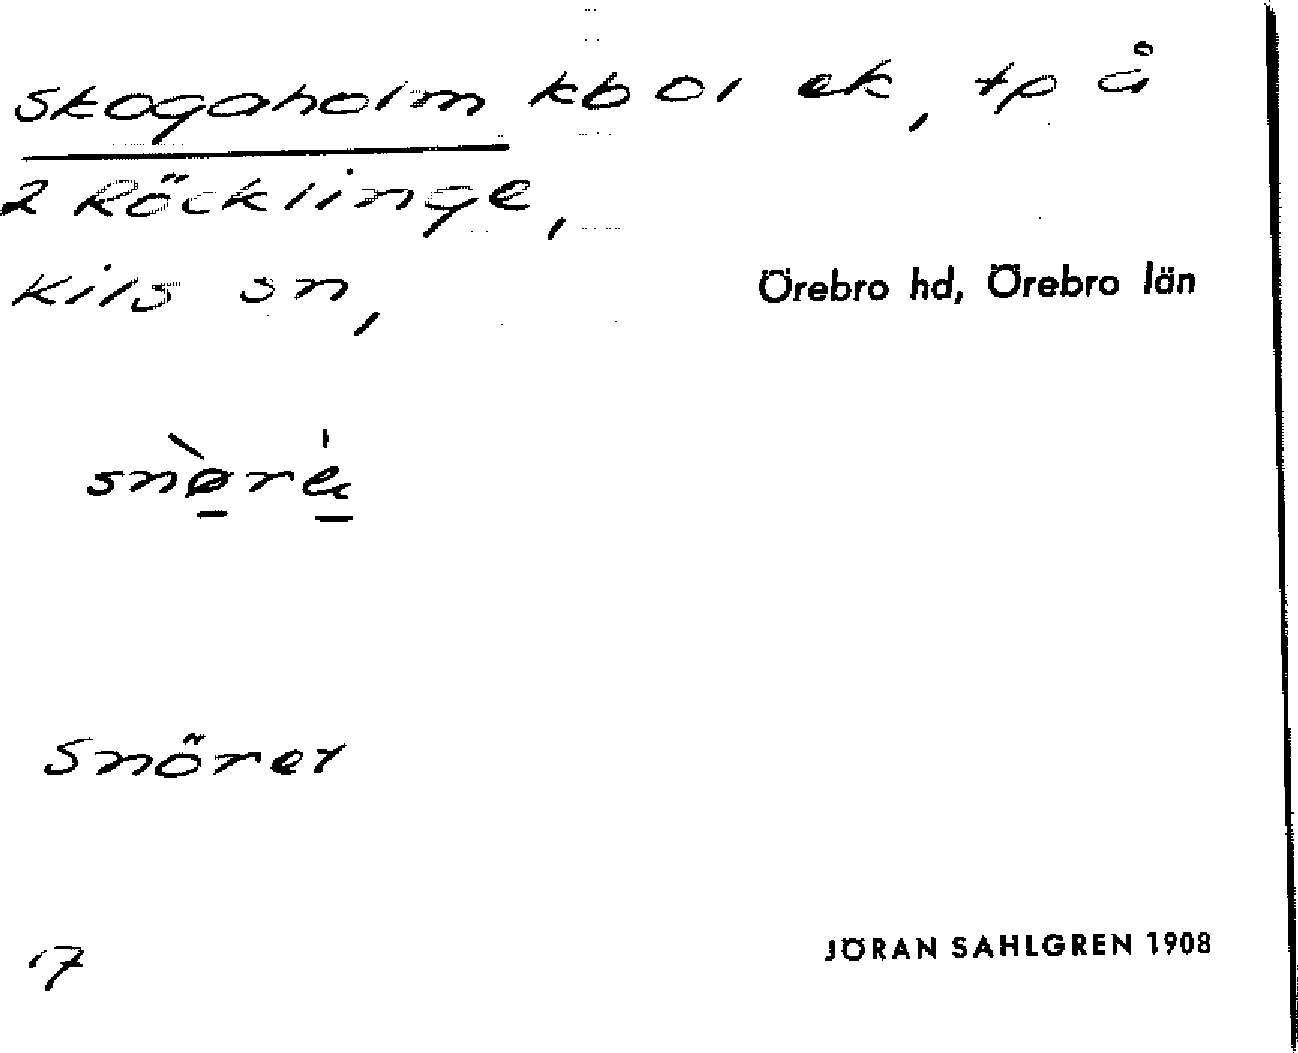 Skogaholm kb 01 ek, tp å
2 Röcklinge,
Kils sn, Örebro hd, Örebro län
Snöret
17
JÖRAN SAHLGREN 1908